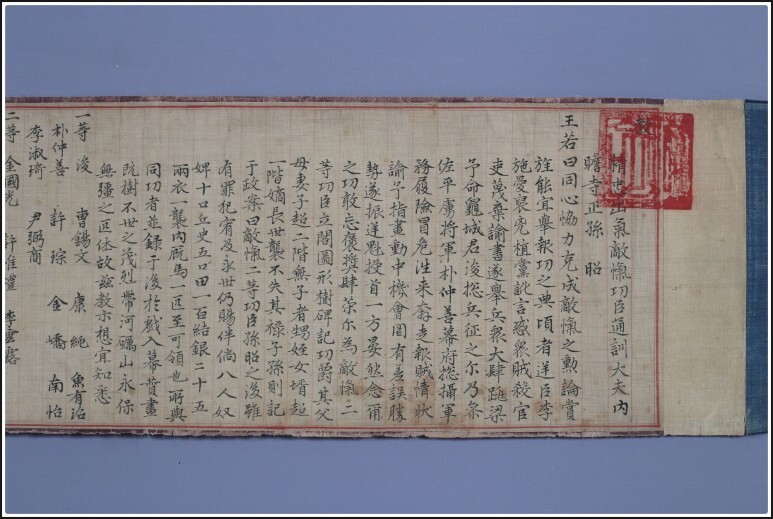 敎
精忠出氣敵愾功臣通訓大夫內
贍寺正孫 昭
王若曰同心恊力克成敵愾之勳論賞
旌能宜舉報功之典頃者逆臣李
施愛裒兇植黨訛言惑衆賊殺官
吏蔑棄諭書遂舉兵衆大肆跳梁
予命龜城君浚捴兵征之尒乃參
佐平虜將軍朴仲善幕府捴攝軍
務履險冒危往來奔走報賊情狀
諭予指畫動中機會罔有差誤勝
勢遂振逆魁授首一方晏然念爾
之功敢忘褒奬肆策尒爲敵愾二
等功臣立閣圖形樹碑記功爵其父
母妻子超二階無子者甥姪女壻超
一階嫡長世襲不失其祿子孫則記
于政案曰敵愾二等功臣孫昭之後雖
有罪犯宥及永世仍賜伴倘八人奴
婢十口丘史五口田一百結銀二十五
兩衣一襲內廐馬一匹至可領也所與
同功者並錄于後於戱入幕賛畫
旣樹不世之茂烈帶河礪山永保
無疆之匹休故玆敎示想宜知悉
一等 浚 曺錫文 康純 魚有沼
朴仲善 許琮 金嶠 南怡
李淑琦 尹弼商
二等 金國光 許惟禮 李雲露